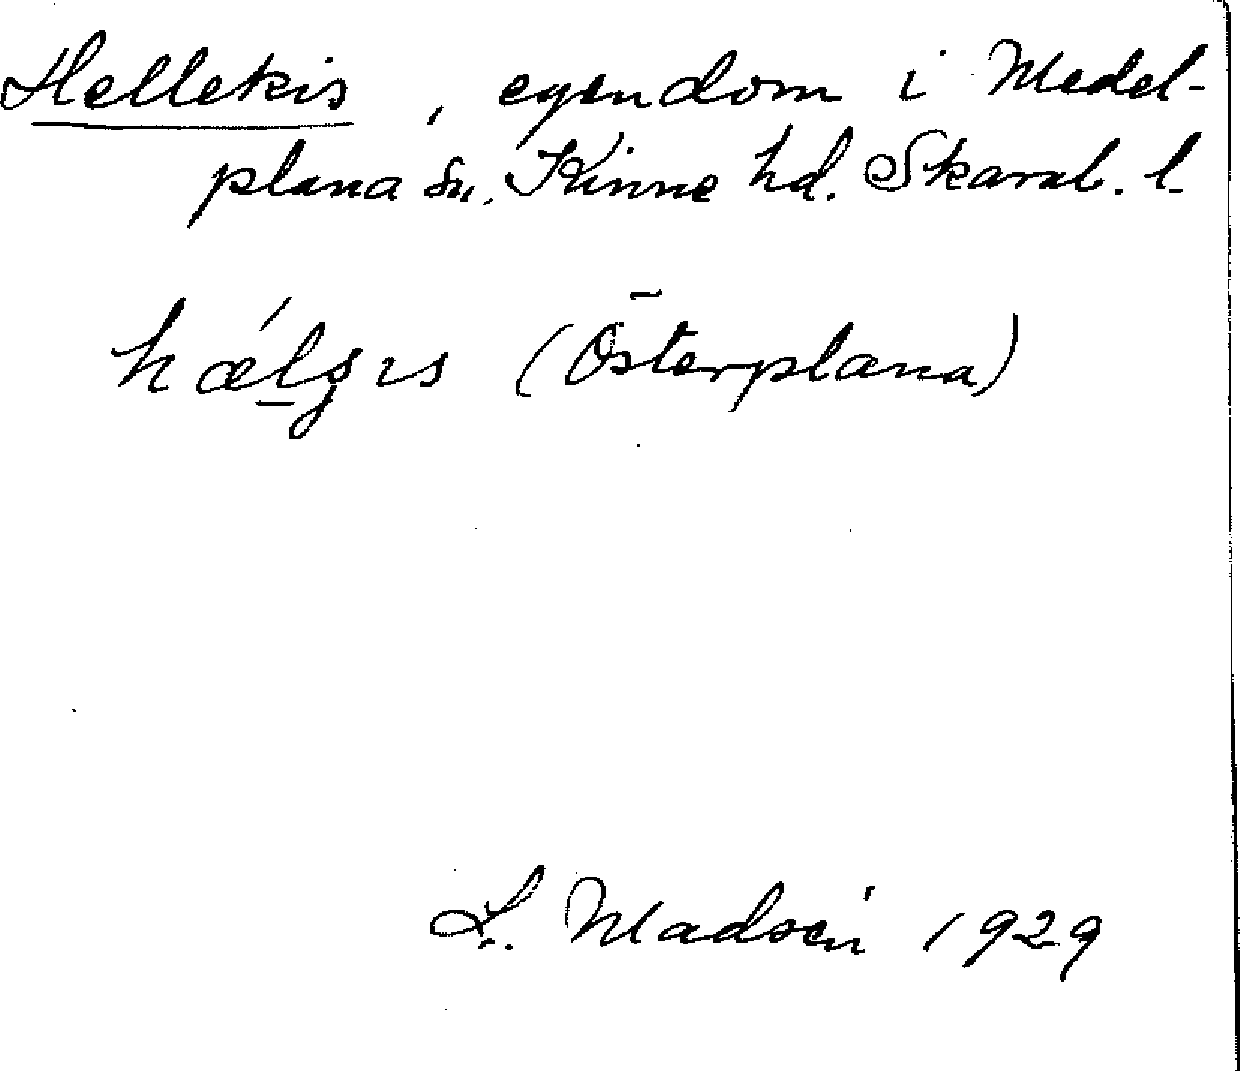 Hellekis, egendom i Medel-
plana sn, Kinne hd. Skarab. l.
hǽl̲gıs (Österplana)
L. Madsén 1929